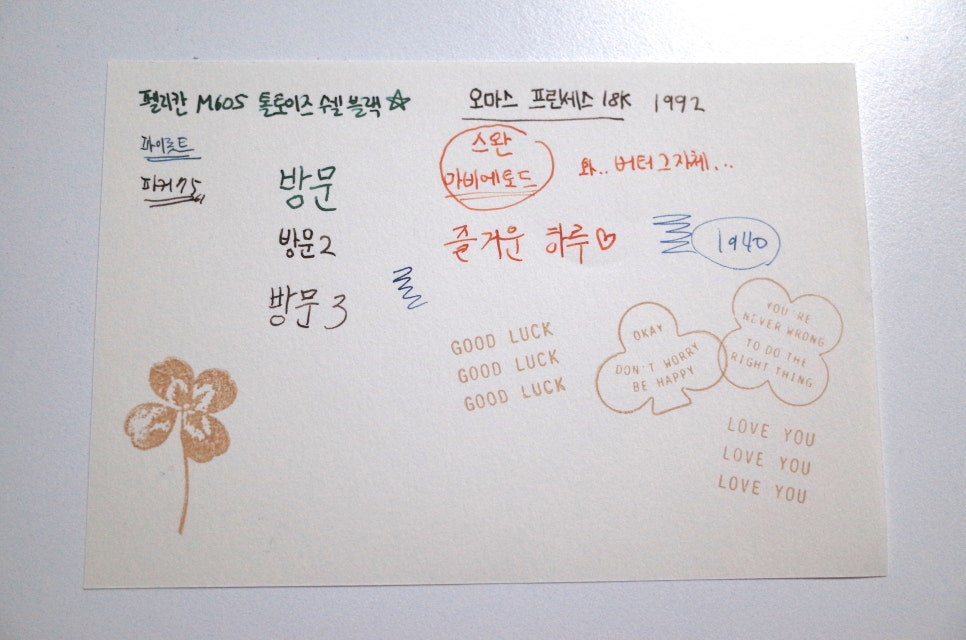 펠리칸 M605 톨토이즈 쉘 블랙☆
오마스 프린세스 18K 1992
파이롯트
파커 75
스완
가비에토드
와.. 버터 그 자체...
방문
방문2
방문 3
즐거운 하루♡
1940
GOOD LUCK
GOOD LUCK
GOOD LUCK
OKAY
DON'T WORRY
BE HAPPY
YOU'RE
NEVER WRONG
TO DO THE
RIGHT THING
LOVE YOU
LOVE YOU
LOVE YOU